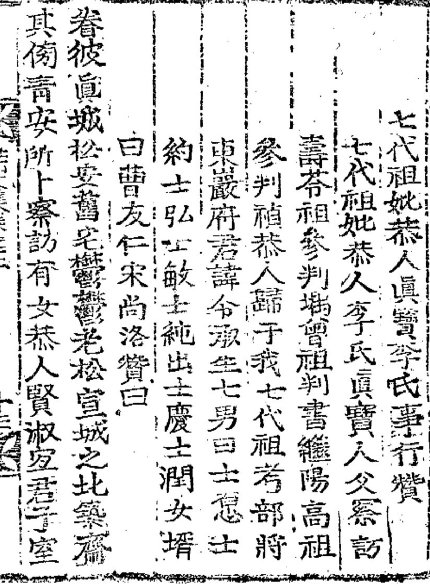 七代祖妣恭人眞寶李氏事行贊
七代祖妣恭人李氏眞寶人父察訪
壽苓祖參判堣曾祖判書繼陽高祖
參判禎恭人歸于我七代祖考部將
東巖府君諱令淑生七男曰士忠士
約士弘士敏士純出士慶士潤女壻
曰曺友仁宋尚洛贊曰
眷彼眞城松安舊宅鬱鬱老松宣城之北築齋
其傍靑安所卜察訪有女恭人賢淑宜君子室